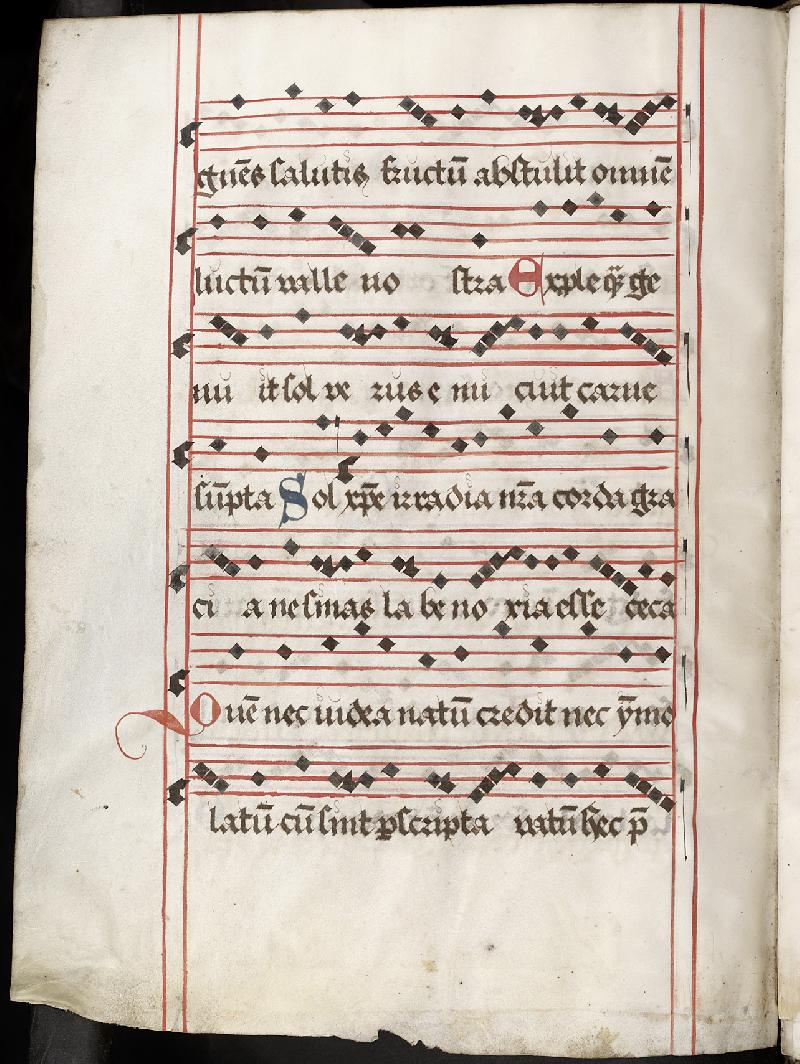 gnēs salutis fructū abstulit omnē
luctū valle no stra Exple q̄ ge
nu it sol ve rus e nu cuit carne
sūpta Sol xp̄e irradia nr̄a corda gra
ci a ne smas la be no xia esse ceca
Quē nec iudea natū credit nec ymo
latū cū sint p̱scripta vatū hec p̄